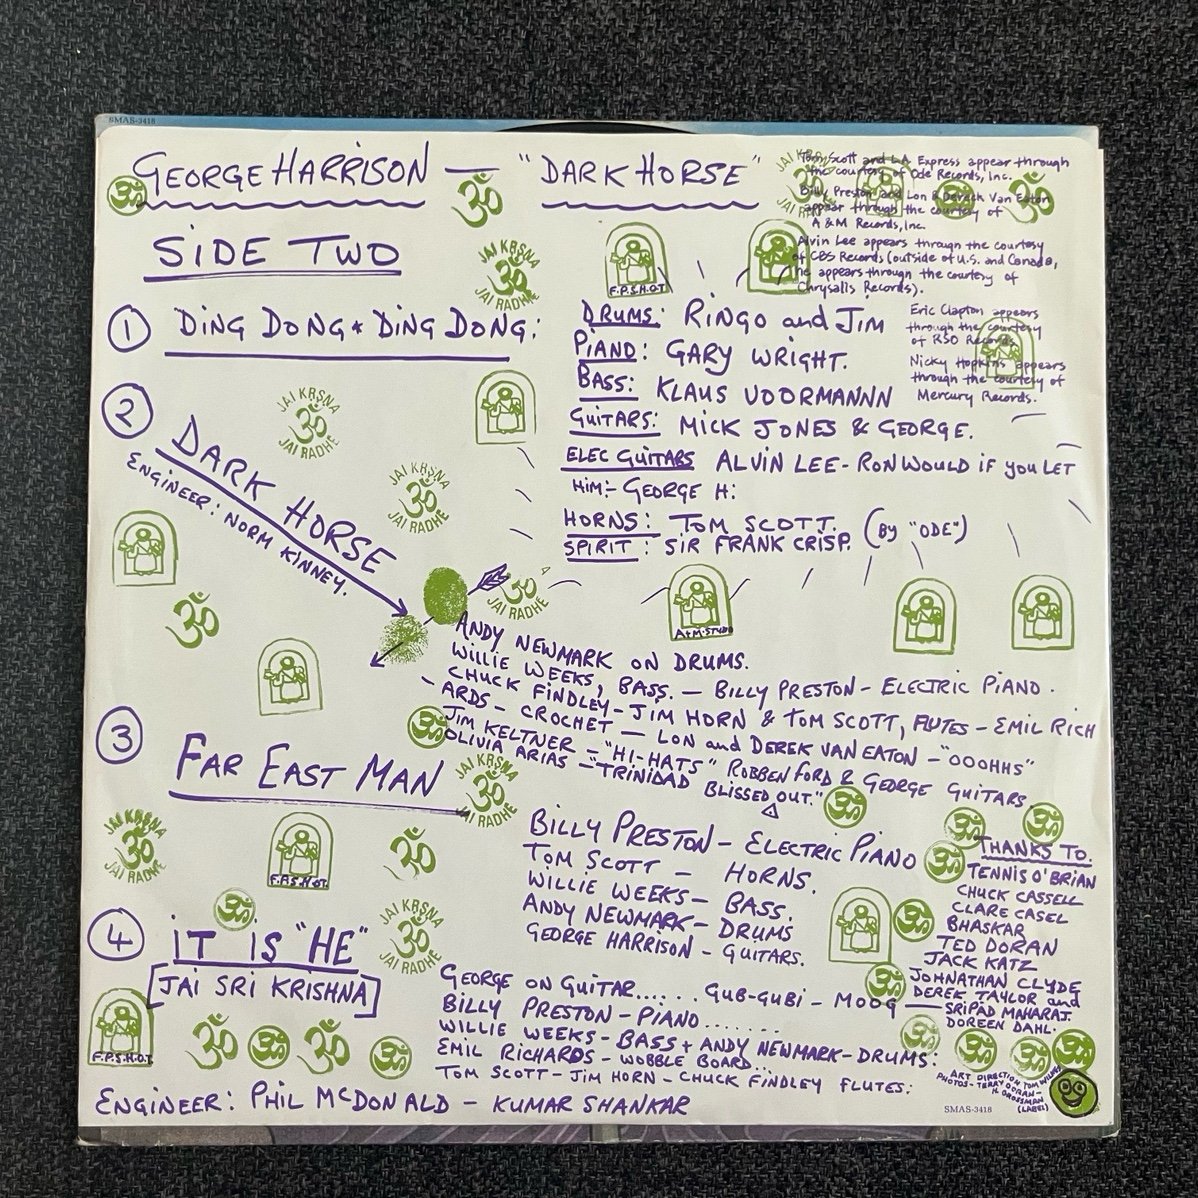 SMAS-3418
GEORGE HARRISON — "DARK HORSE"
SIDE TWO
Tom Scott and L.A. Express appear through
the courtesy of Ode Records, Inc.
Billy Preston and Lon & Derrek Van Eaton
appear through the courtesy of
A & M Records, Inc.
Alvin Lee appears through the courtesy
of CBS Records (outside of U.S. and Canada,
he appears through the courtesy of
Chrysalis Records).
Eric Clapton appears
through the courtesy
of RSO Records
Nicky Hopkins appears
through the courtesy of
Mercury Records.
JAI KRSNA
JAI RADHE
F.P.S.H.O.T.
① DING DONG * DING DONG:
DRUMS: RINGO and JIM
PIANO: GARY WRIGHT.
BASS: KLAUS VOORMANNN
GUITARS: MICK JONES & GEORGE.
ELEC GUITARS ALVIN LEE - RON WOULD IF YOU LET
HIM:- GEORGE H:
HORNS: TOM SCOTT. (BY "ODE")
SPIRIT: SIR FRANK CRISP.
② DARK HORSE
ENGINEER: NORM KINNEY.
JAI KRSNA
ॐ
JAI RADHE
JAI KRSNA
ॐ
JAI RADHE
ॐ
JAI RADHE
A+M·STUDIO
ANDY NEWMARK ON DRUMS.
WILLIE WEEKS, BASS. — BILLY PRESTON - ELECTRIC PIANO.
CHUCK FINDLEY - JIM HORN & TOM SCOTT, FLUTES - EMIL RICH
- ARDS - CROCHET — LON and DEREK VAN EATON - "OOOHHS"
JIM KELTNER - "HI-HATS" ROBBEN FORD & GEORGE GUITARS.
OLIVIA ARIAS - "TRINIDAD BLISSED OUT."
③ FAR EAST MAN
JAI KRSNA
ॐ
JAI RADHE
BILLY PRESTON - ELECTRIC PIANO
TOM SCOTT — HORNS.
WILLIE WEEKS - BASS.
ANDY NEWMARK - DRUMS
GEORGE HARRISON - GUITARS.
JAI KRSNA
ॐ
JAI RADHE
F.P.S.H.O.T.
THANKS TO.
TENNIS O'BRIAN
CHUCK CASSELL
CLARE CASEL
BHASKAR
TED DORAN
JACK KATZ
JOHNATHAN CLYDE
DEREK TAYLOR and
SRIPAD MAHARAJ.
DOREEN DAHL.
④ IT IS "HE"
[JAI SRI KRISHNA]
JAI KRSNA
ॐ
JAI RADHE
GEORGE ON GUITAR...... GUB-GUBI - MOOG
BILLY PRESTON - PIANO.......
WILLIE WEEKS - BASS + ANDY NEWMARK - DRUMS:
EMIL RICHARDS - WOBBLE BOARD...
TOM SCOTT - JIM HORN - CHUCK FINDLEY FLUTES:
F.P.S.H.O.T.
ENGINEER: PHIL McDONALD - KUMAR SHANKAR
ART DIRECTION TOM WILKES
PHOTOS - TERRY DORAN -
H. GROSSMAN
(LABEL)
SMAS-3418